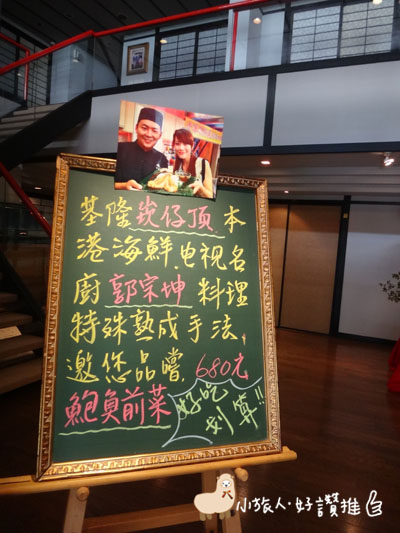 基隆崁仔頂本
港海鮮电视名
廚郭宗坤料理
特殊熟成手法,
邀您品嚐 680元
鮑魚前菜
好吃
划算!!
小旅人·好讚推